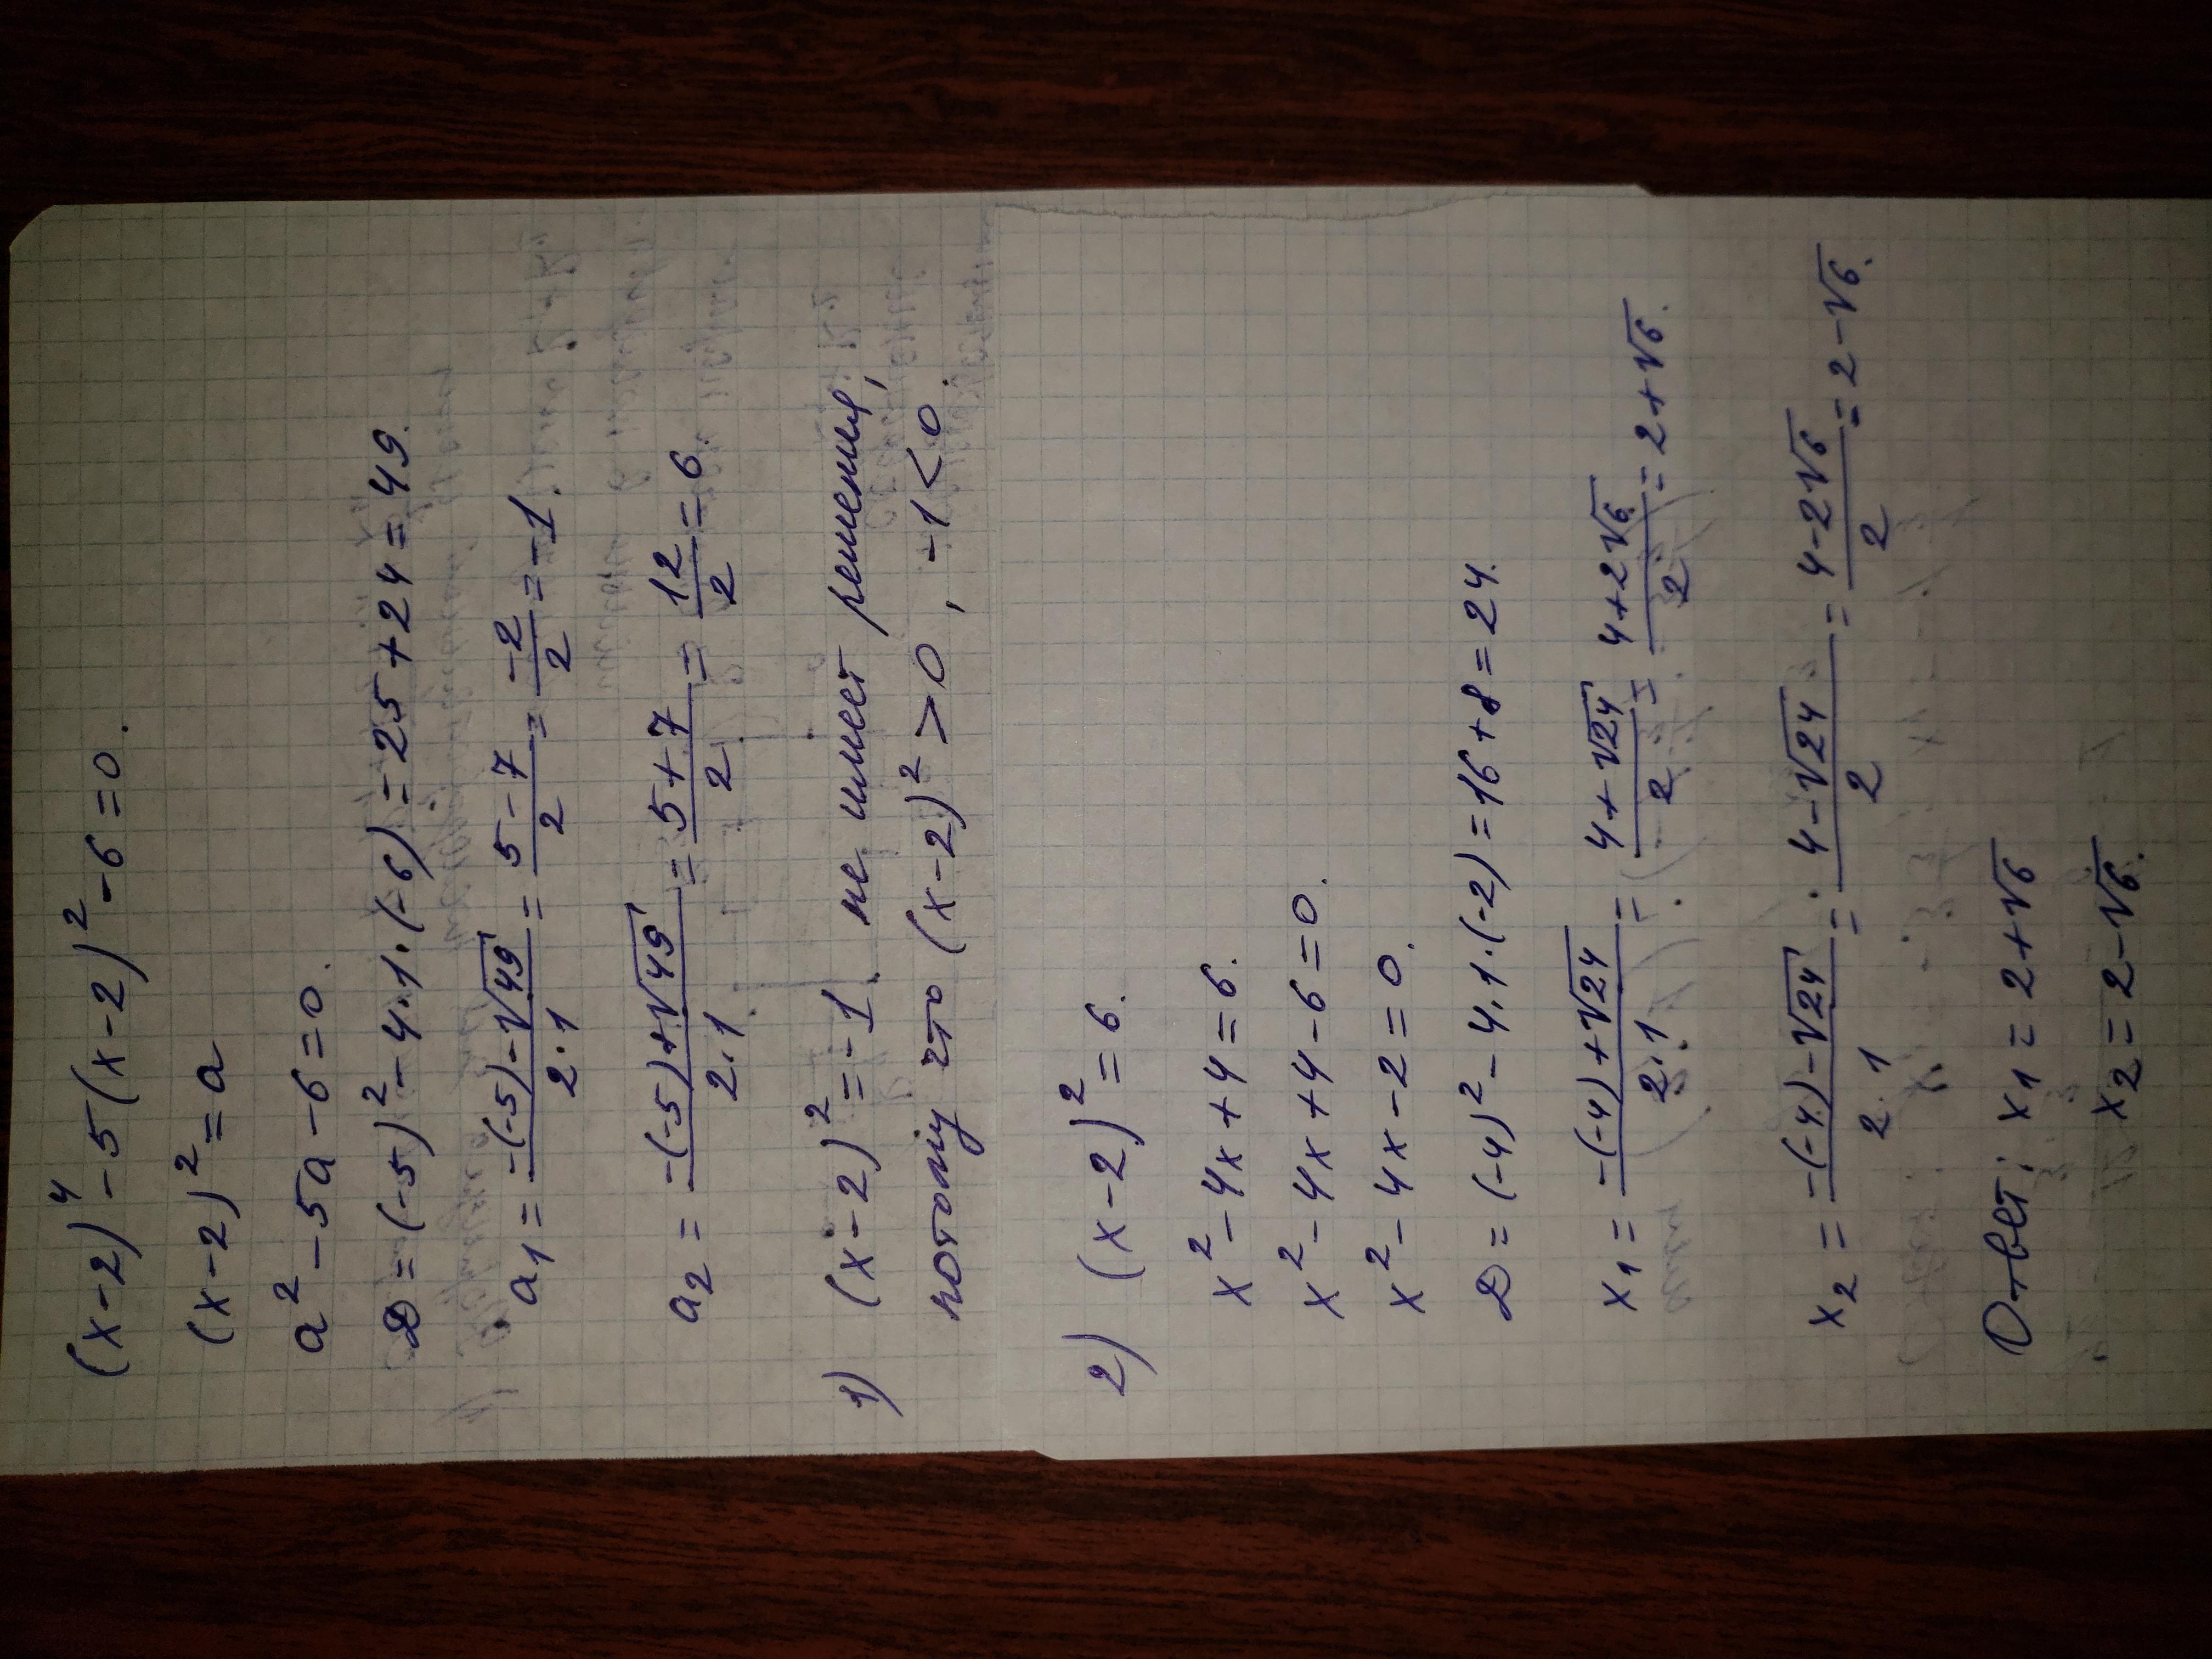 (x-2)⁴-5(x-2)²-6=0.
(x-2)²=a
a²-5a-6=0.
D=(-5)²-4·1·(-6)=25+24=49.
a₁=(-(-5)-√49)/(2·1)=(5-7)/2=(-2)/2=-1.
a₂=(-(-5)+√49)/(2·1)=(5+7)/2=12/2=6.
1) (x-2)²=-1. не имеет решения,
потому что (x-2)²>0, -1<0.
2) (x-2)²=6.
x²-4x+4=6.
x²-4x+4-6=0.
x²-4x-2=0.
D=(-4)²-4·1·(-2)=16+8=24.
x₁=(-(-4)+√24)/(2·1)=(4+√24)/2=(4+2√6)/2=2+√6.
x₂=(-(-4)-√24)/(2·1)=(4-√24)/2=(4-2√6)/2=2-√6.
Ответ: x₁=2+√6
x₂=2-√6.